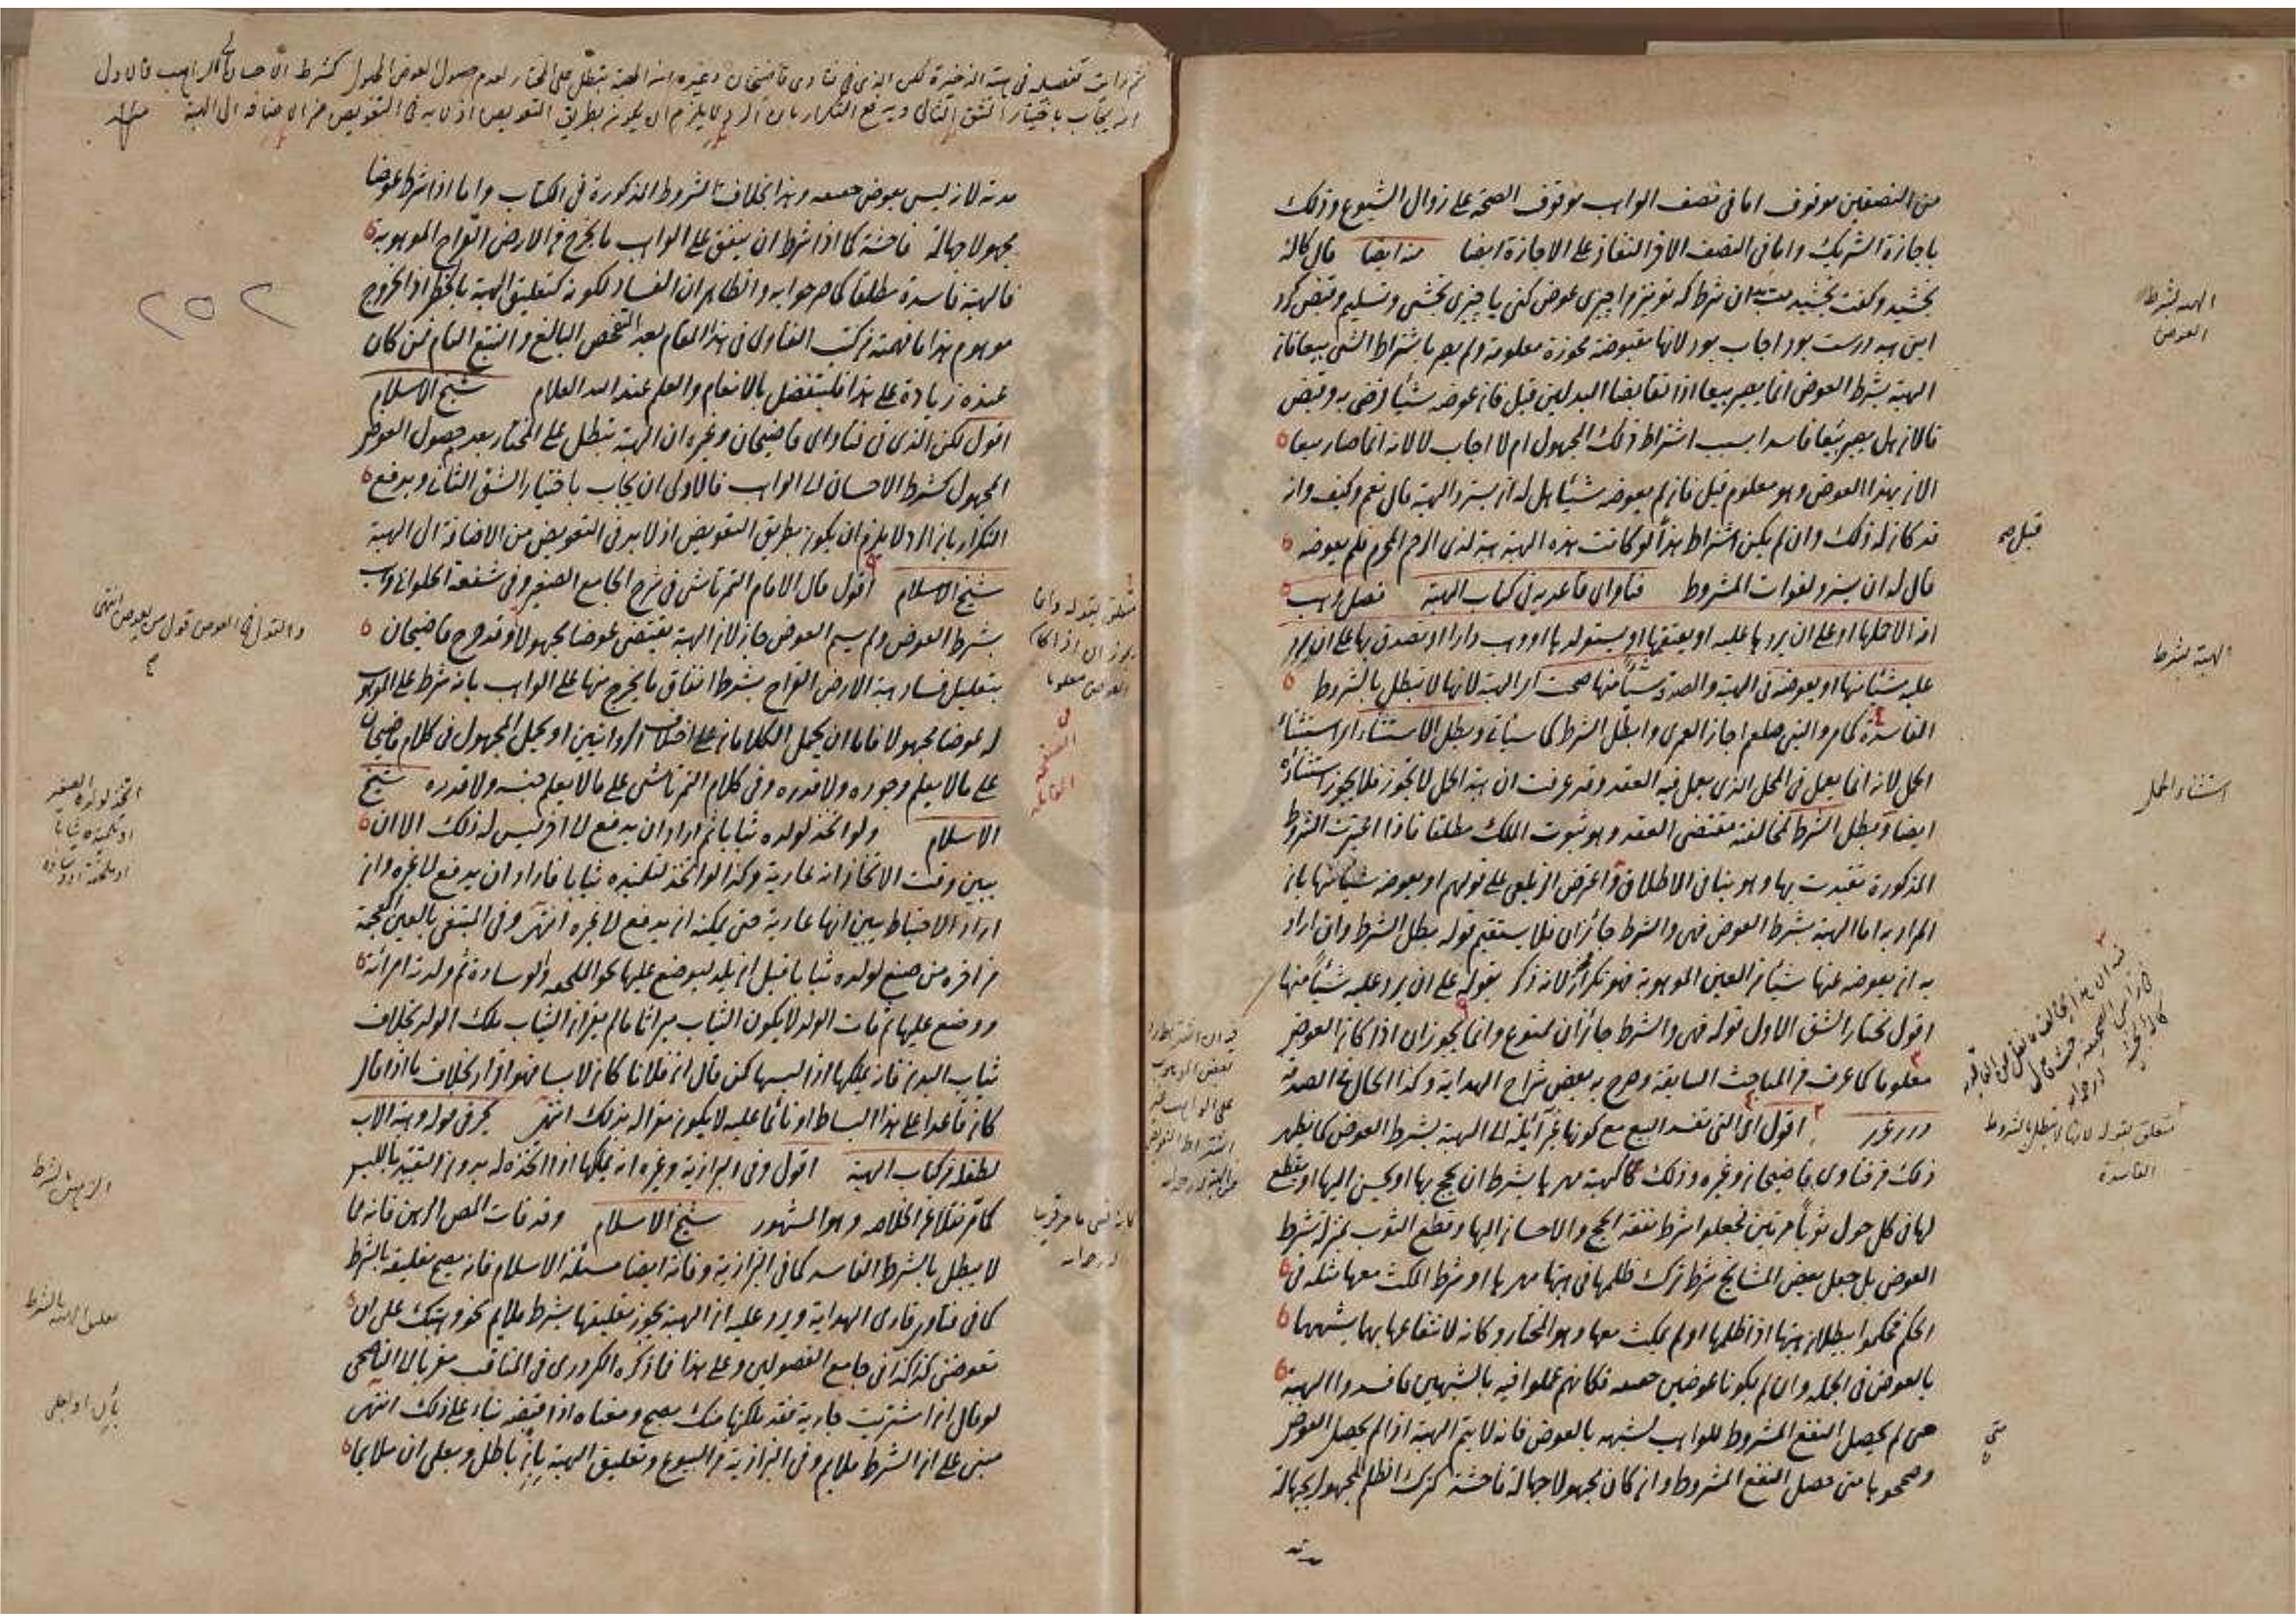 من النصفين موقوف اما في نصف الواهب موقوف الصحة على زوال الشيوع وذلك
باجازة الشريك واما في النصف الاخر النفاذ على الاجازة ايضا منه ايضا قال كاله
بخشيد وكفت بخشيدمت بدان شرط كه تو نيز مرا چيزى عوض كنى يا چيزى بخشى وتسليم وقبض كرد
اين هبه درست بود اجاب بود لانها مقبوضة محوزة معلومة ولم يصر باشتراط الشئ بيعا فان
الهبة بشرط العوض انما يصير بيعا اذا تقابضا البدلين قيل فان عوضه شيئا رضى به وقبض
فالان هل يصير بيعا فاسدا بسبب اشتراط ذلك المجهول ام لا اجاب لا لانه انما صار بيعا
الان بهذا العوض وهو معلوم قيل فان لم يعوضه شيئا هل له ان يسترد الهبة قال نعم وكيف وان
قد كان له ذلك وان لم يكن اشتراط هذا لو كانت هذه الهبة هبة لذى الرحم المحرم فلم يعوضه
قال له ان يسترد لفوات المشروط فتاواى قاعديه في كتاب الهبة فصل وهب
امة الا حملها او على ان يردها عليه او يعتقها او يستولدها او وهب دارا او تصدق بها على ان يرد
عليه شيئا منها او يعوضه في الهبة والصدقة شيئا منها صحت اى الهبة لانها لا تبطل بالشروط
الفاسدة كما مر والنبى صلعم اجاز العمرى وابطل الشرط كما سيأتى وبطل الاستثناء اى استثناء
الحمل لانه انما يعمل في المحل الذى يعمل فيه العقد وقد عرفت ان هبة الحمل لا تجوز فلا يجوز استثناؤه
ايضا وبطل الشرط لمخالفته مقتضى العقد وهو ثبوت الملك مطلقا فاذا اعتبرت الشروط
المذكورة تقيدت بها وهو ينافى الاطلاق واعترض الزيلعى على قولهم او يعوضه شيئا منها بان
المراد به اما الهبة بشرط العوض فهى والشرط جائزان فلا يستقيم قوله بطل الشرط وان اراد
به ان يعوضه عنها شيئا من العين الموهوبة فهو تكرار لانه ذكر بقوله على ان يرد عليه شيئا منها
اقول نختار الشق الاول قوله فهى والشرط جائزان ممنوع وانما يجوزان اذا كان العوض
معلوما كما عرف في المباحث السابقة وصرح به بعض شراح الهداية وكذا الحال في الصدقة
درر غرر اقول اى التى تفسد البيع مع كونها غير آئلة الى الهبة بشرط العوض كما يظهر
ذلك من فتاوى قاضيخان وغيره وذلك كالهبة مهرها بشرط ان يحج بها او يحسن اليها او يقطع
لها في كل حول ثوبا مرتين فجعلوا شرط نفقة الحج والاحسان اليها وقطع الثوب بمنزلة شرط
العوض بل جعل بعض المشايخ شرط ترك ظلمها في هبتها مهرها او شرط المكث معها مثله في
الحكم فحكموا ببطلان هبتها اذا ظلمها او لم يمكث معها وهو المختار وكانه لانتفاعها بهما يشبههما
بالعوض في الجملة وان لم يكونا عوضين حقيقة فكانهم عملوا فيه بالشبهين فافسدوا الهبة
متى لم يحصل النفع المشروط للواهب لشبهه بالعوض فانه لا يتم الهبة اذا لم يحصل العوض
وصححوها متى حصل النفع المشروط وان كان مجهولا جهالة فاحشة كترك الظلم المجهول بجهالة
الهبة بشرط العوض
قبل صح
الهبة بشرط
استثناء الحمل
متعلق بقوله لانها لا تبطل بالشروط الفاسدة
متى
مدته
ثم رأيت تفصيله في هبة الذخيرة لكن الذى في فتاوى قاضيخان وغيره ان الهبة تبطل على المختار لعدم حصول العوض المجهول كشرط الاحسان الى الواهب فالاولى
ان يجاب باختيار الشق الثانى ويدفع التكرار بان الرد لا يلزم ان يكون بطريق التعويض اذ لا بد في التعويض من الاضافة الى الهبة
٢٥٢
مدته لانه ليس بعوض حقيقة وهذا بخلاف الشروط المذكورة في الكتاب واما اذا شرط عوضا
مجهولا جهالة فاحشة كما اذا شرط ان ينفق على الواهب ما يخرج من الارض القراح الموهوبة
فالهبة فاسدة مطلقا كما صرحوا به والظاهر ان الفساد لكونه كتعليق الهبة بالخطر اذ الخروج
موهوم هذا ما فهمته من كتب الفتاوى في هذا المقام بعد التفحص البالغ والتتبع التام فمن كان
عنده زيادة على هذا فليتفضل بالانعام والعلم عند الله العلام شيخ الاسلام
اقول لكن الذى في فتاواى قاضيخان وغيره ان الهبة تبطل على المختار بعد حصول العوض
المجهول كشرط الاحسان الى الواهب فالاولى ان يجاب باختيار الشق الثانى ويدفع
التكرار بان الرد لا يلزم ان يكون بطريق التعويض اذ لا بد في التعويض من الاضافة الى الهبة
شيخ الاسلام اقول قال الامام التمرتاشى في شرح الجامع الصغير وفي شفعة الحلوانى وهب
بشرط العوض ولم يسم العوض جاز لان الهبة يقتضى عوضا مجهولا وقد صرح قاضيخان
بتعليل فساد هبة الارض القراح بشرط انفاق ما يخرج منها على الواهب بانه شرط على الموهوب
له عوضا مجهولا فاما ان يحمل الكلامان على اختلاف الروايتين او يحمل المجهول في كلام قاضيخان
على ما لا يعلم وجوده ولا قدره وفي كلام التمرتاشى على ما لا يعلم جنسه ولا قدره شيخ
الاسلام ولو اتخذ لولده ثيابا ثم اراد ان يدفع الى اخر ليس له ذلك الا ان
يبين وقت الاتخاذ انه عارية وكذا لو اتخذ لتلميذه ثيابا فاراد ان يدفع لغيره وان
اراد الاحتياط يبين انها عارية حتى يمكنه ان يدفع لغيره انتهى وفي المبتغى بالغين المعجمة
من اخره من صنع لولده ثيابا قبل ان يلد ليوضع عليها نحو الملحفة والوسادة ثم ولدته امرأته
ووضع عليها ثم مات الولد لا يكون الثياب ميراثا ما لم يقر ان الثياب ملك الولد بخلاف
ثياب البدن فانه يملكها اذا لبسها كمن قال ان فلانا كان لابسا فهو اقرار بخلاف ما اذا قال
كان قاعدا على هذا البساط او نائما عليه لا يكون مقرا له بذلك انتهى بحر في قوله وهبة الاب
لطفله من كتاب الهبة اقول وفي البزازية وغيره انه يملكها اذا اتخذه له بدون التقييد باللبس
كما مر نقلا عن الخلاصة وهو المشهور شيخ الاسلام وقد فات المص الرهن فانه مما
لا يبطل بالشرط الفاسد كما في البزازية وفاته ايضا مسئلة الاسلام فانه يصح تعليقه بالشرط
كما في فتاوى قارى الهداية ويرد عليه ان الهبة يجوز تعليقها بشرط ملايم نحو وهبتك على ان
تعوضنى كذا كذا في جامع الفصولين وعلى هذا فما ذكره الكردرى في المناقب معزيا الى الناصحى
لو قال ان اشتريت جارية فقد ملكتها منك يصح ومعناه اذا قبضه بناء على ذلك انتهى
مبنى على ان الشرط ملايم وفي البزازية من البيوع وتعليق الهبة بان باطل وبعلى ان ملايما
متعلق بقوله وانما يجوزان اذا كان العوض معلوما
في الصفحة المقابلة
والقول في العوض قول من يعوض انتهى
اتخذ لولده الصغير
او لتلميذه ثيابا
تعليق الهبة بالشرط
بان او بعلى